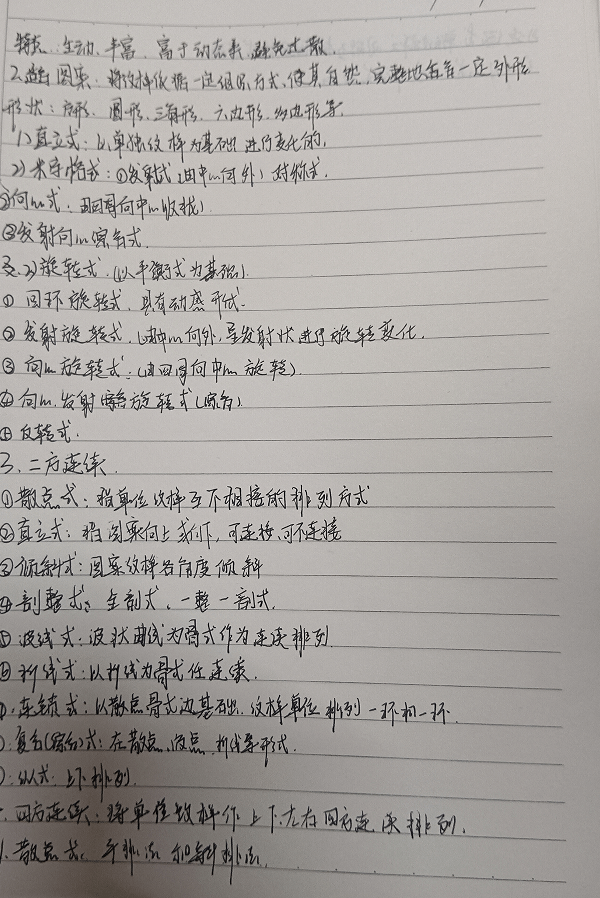 特点：生动、丰富、富于动态美，避免尤散
2.适合图案：将纹样依据一定组织方式，使其自然、完整地适合一定外形
形状：方形、圆形、三角形、六边形、多边形等.
1)直立式：以单独纹样为基础进行变化的.
2)米字格式：①发射式(由中心向外)对称式.
②向心式：(由四周向中心收拢)
③发射向心综合式.
3)旋转式.(以平衡式为基础)
① 回环旋转式，具有动感形状.
② 发射旋转式.(由中心向外，呈发射状进行旋转变化.
③ 向心旋转式：(由四周向中心旋转)
④ 向心.发射结合旋转式(综合)
⑤ 反转式.
3.二方连续.
①散点式：指单位纹样互不相接的排列方式
②直立式：指图案向上或向下，可连接，可不连接
③倾斜式：图案纹样各角度倾斜
④剖整式：全剖式、一整一剖式.
⑤波线式：波状曲线为骨式作为连续排列.
⑥折线式：以折线为骨式作连续.
连锁式：以散点骨式为基础.纹样单位排列一环扣一环.
复合(综合)式：在散点、波点、折线等形式.
纵式：上下排列.
四方连续：将单位纹样作上下、左右四方连续排列.
散点式：平排法和斜排法.